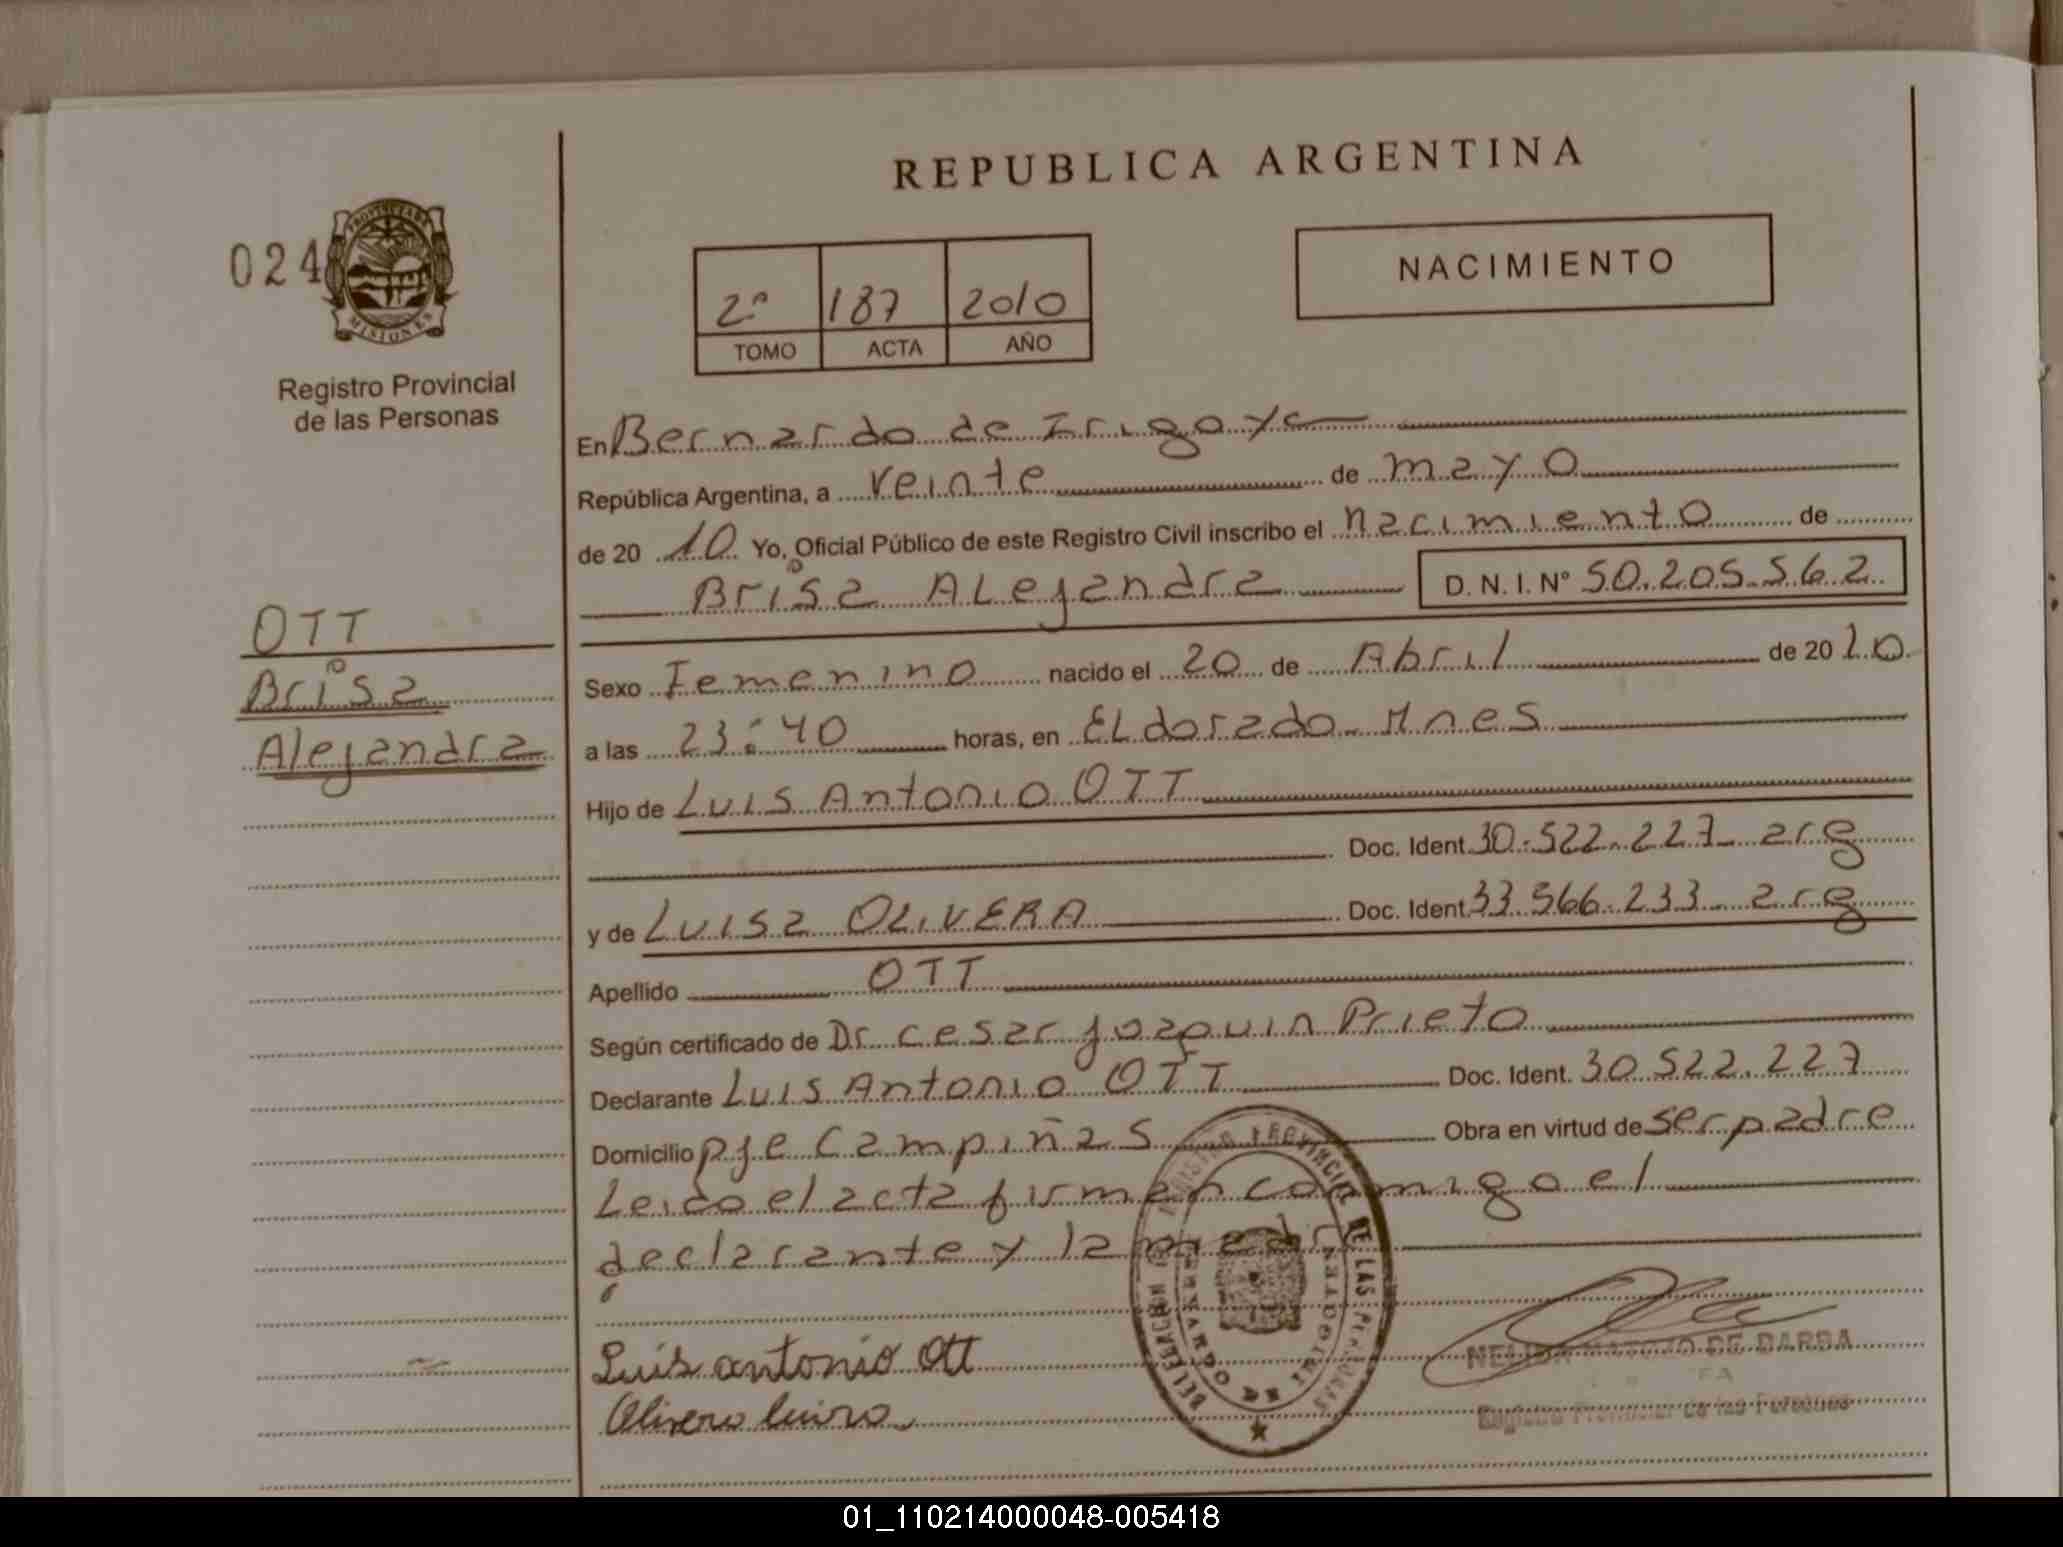 REPUBLICA ARGENTINA
024
PROVINCIA DE
MISIONES
Registro Provincial
de las Personas
2º 187 2010
TOMO ACTA AÑO
NACIMIENTO
En Bernardo de Irigoye
República Argentina, a veinte de mayo
de 20 10 Yo, Oficial Público de este Registro Civil inscribo el nacimiento de
Brisa ALejandra D. N. I. Nº 50.205.562
OTT
Brisa
Alejandra
Sexo Femenino nacido el 20 de Abril de 20 10
a las 23:40 horas, en ELdorado Mnes
Hijo de Luis Antonio OTT
Doc. Ident. 30.522.227 arg
y de Luisa OLIVERA Doc. Ident. 33.566.233 arg
Apellido OTT
Según certificado de Dr cesar Joaquin Prieto
Declarante Luis Antonio OTT Doc. Ident. 30 522.227
Domicilio pje Campiñas Obra en virtud de ser padre
Leido el acta firman conmigo el
declarante y la madre
Luis antonio Ott
Olivera
REGISTRO PROVINCIAL DE LAS PERSONAS
DELEGACION
BERNARDO DE IRIGOYEN
DE BARBA
Registro Provincial de las Personas
01_110214000048-005418